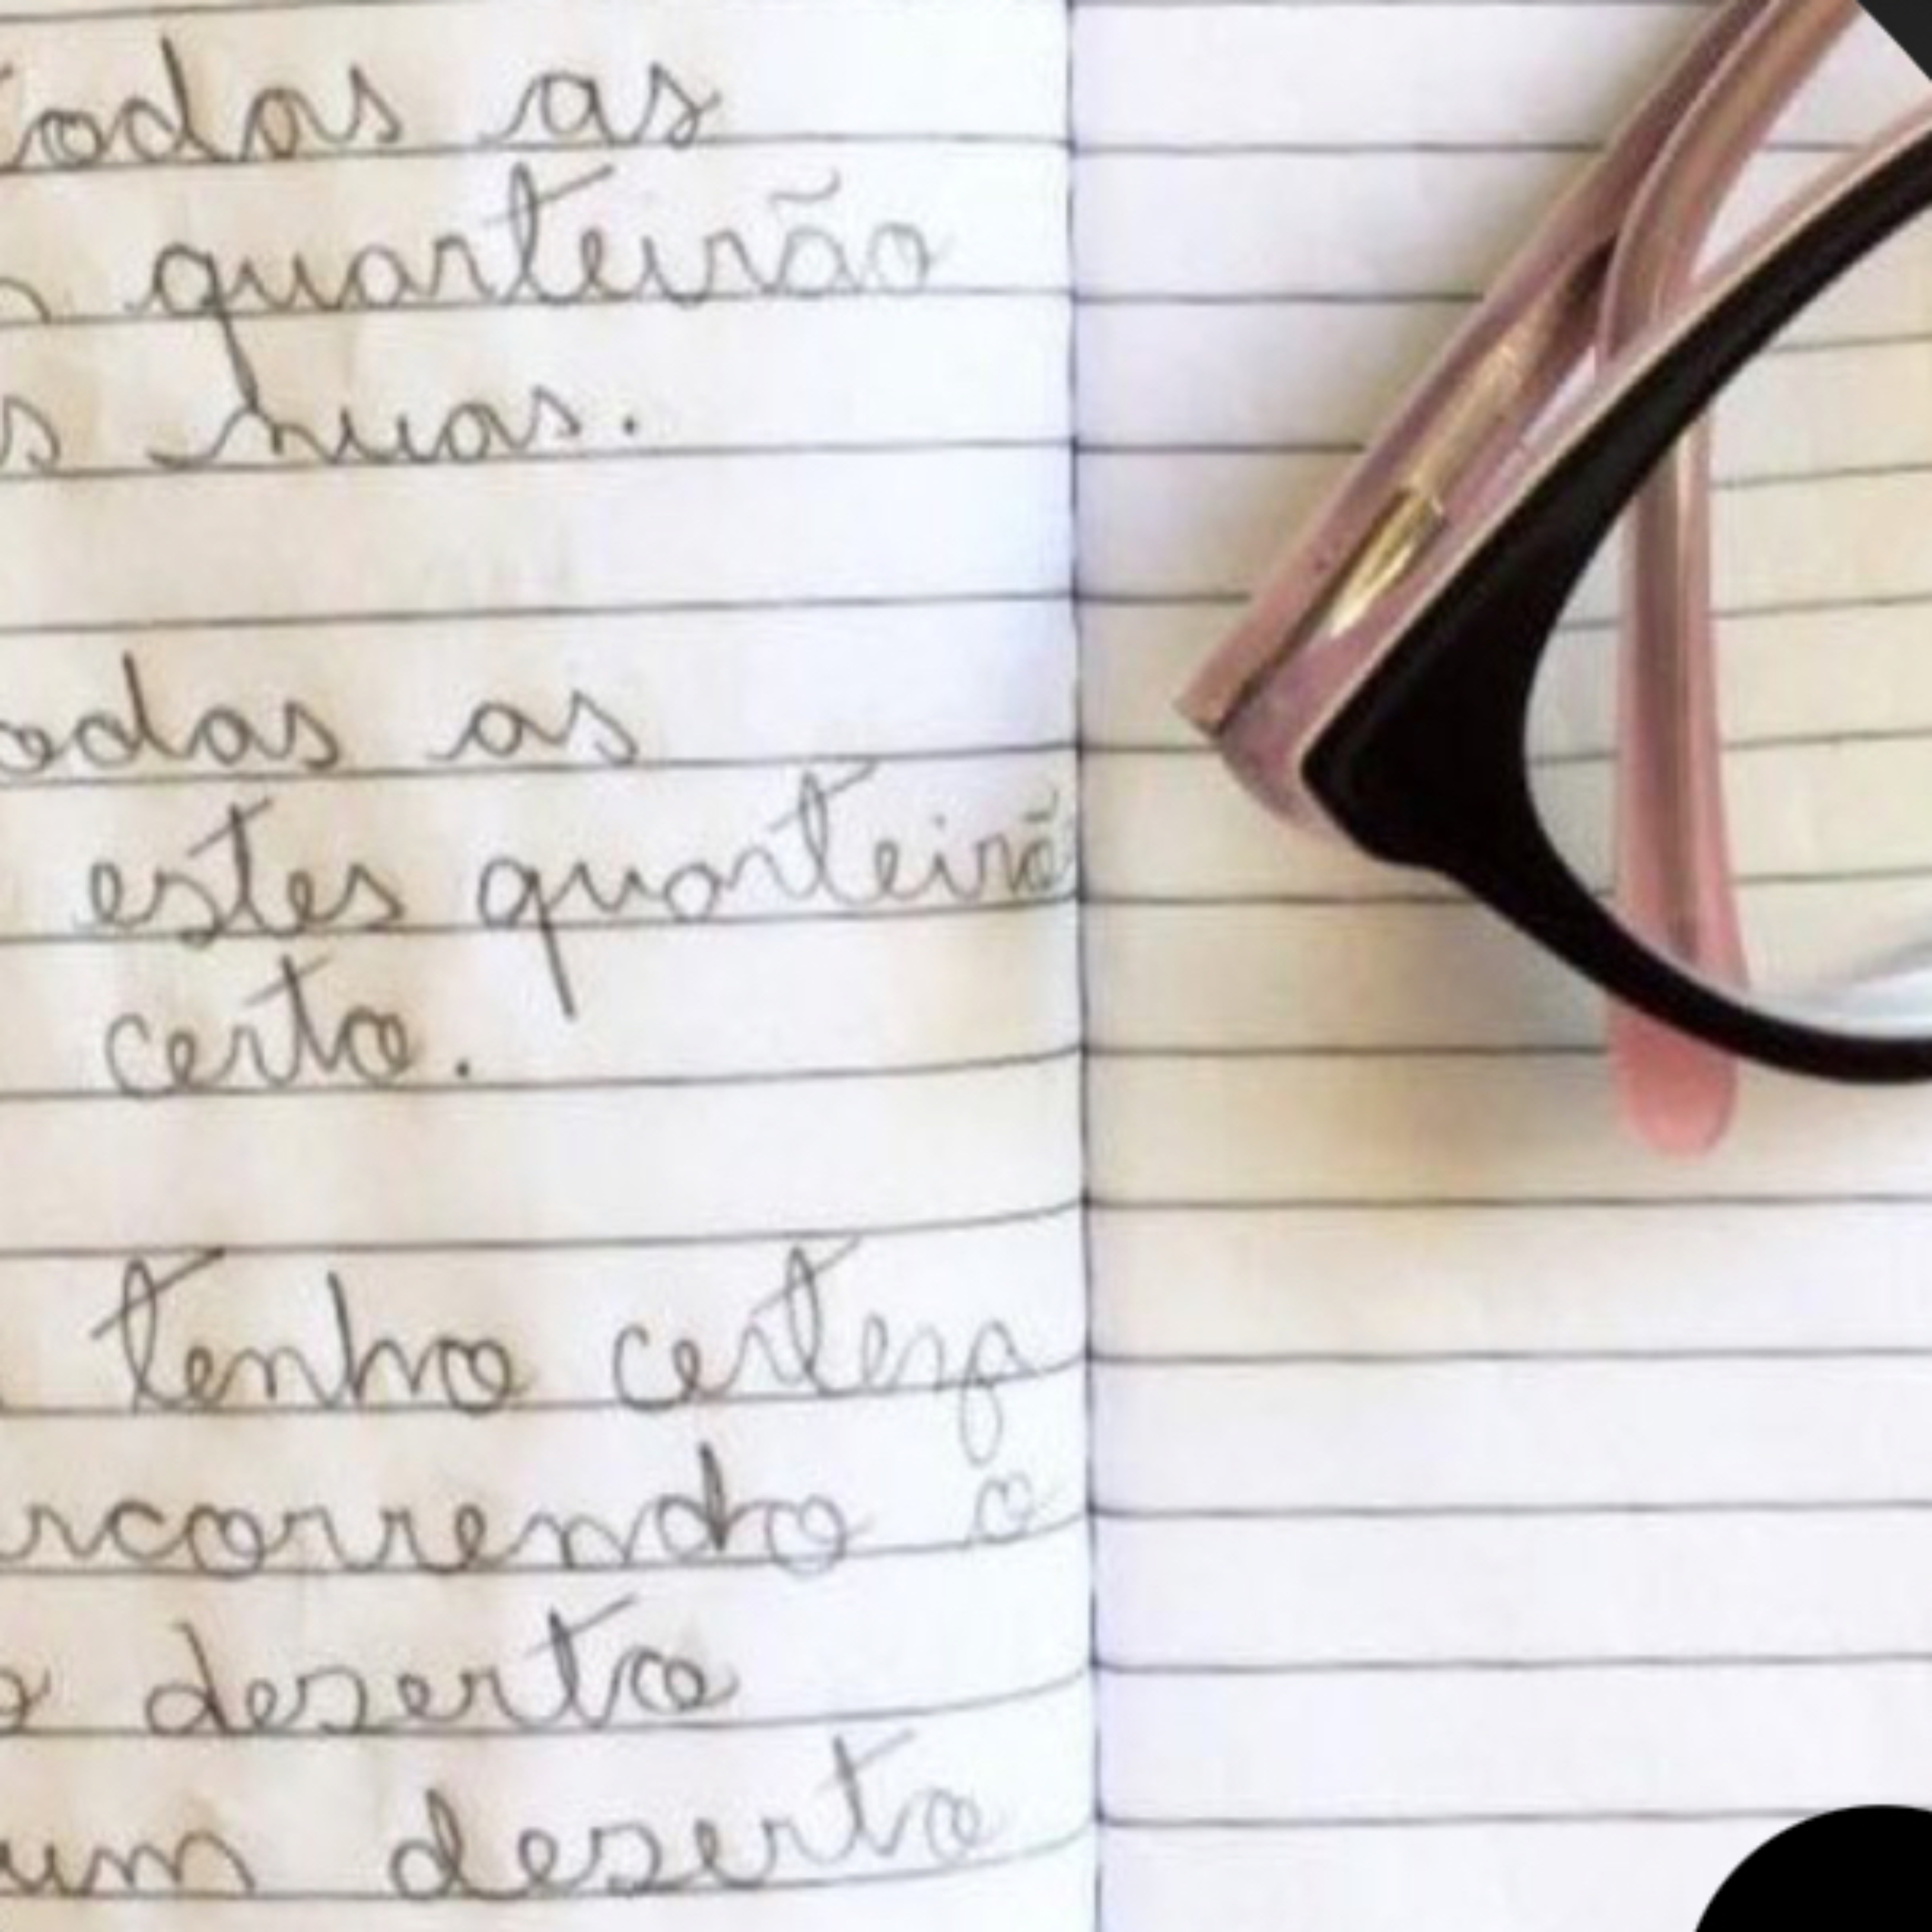 todas as
quarteirão
s ruas.
odas as
estes quarteirã
certo.
tenho certeza
rcorrendo o
o deserto
um deserto